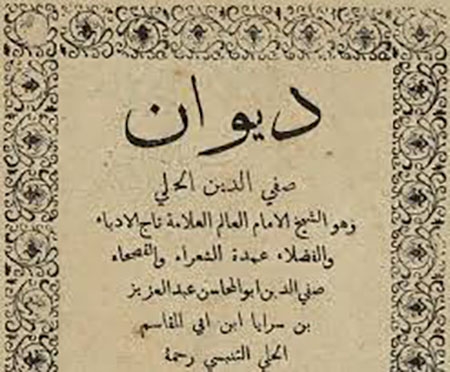 ديوان
صفي الدين الحلي
وهو الشيخ الامام العالم العلامة تاج الادباء
والفضلاء عمدة الشعراء والفصحاء
صفي الدين ابو المحاسن عبد العزيز
بن سرايا ابن ابي القاسم
الحلي التنبسي رحمة